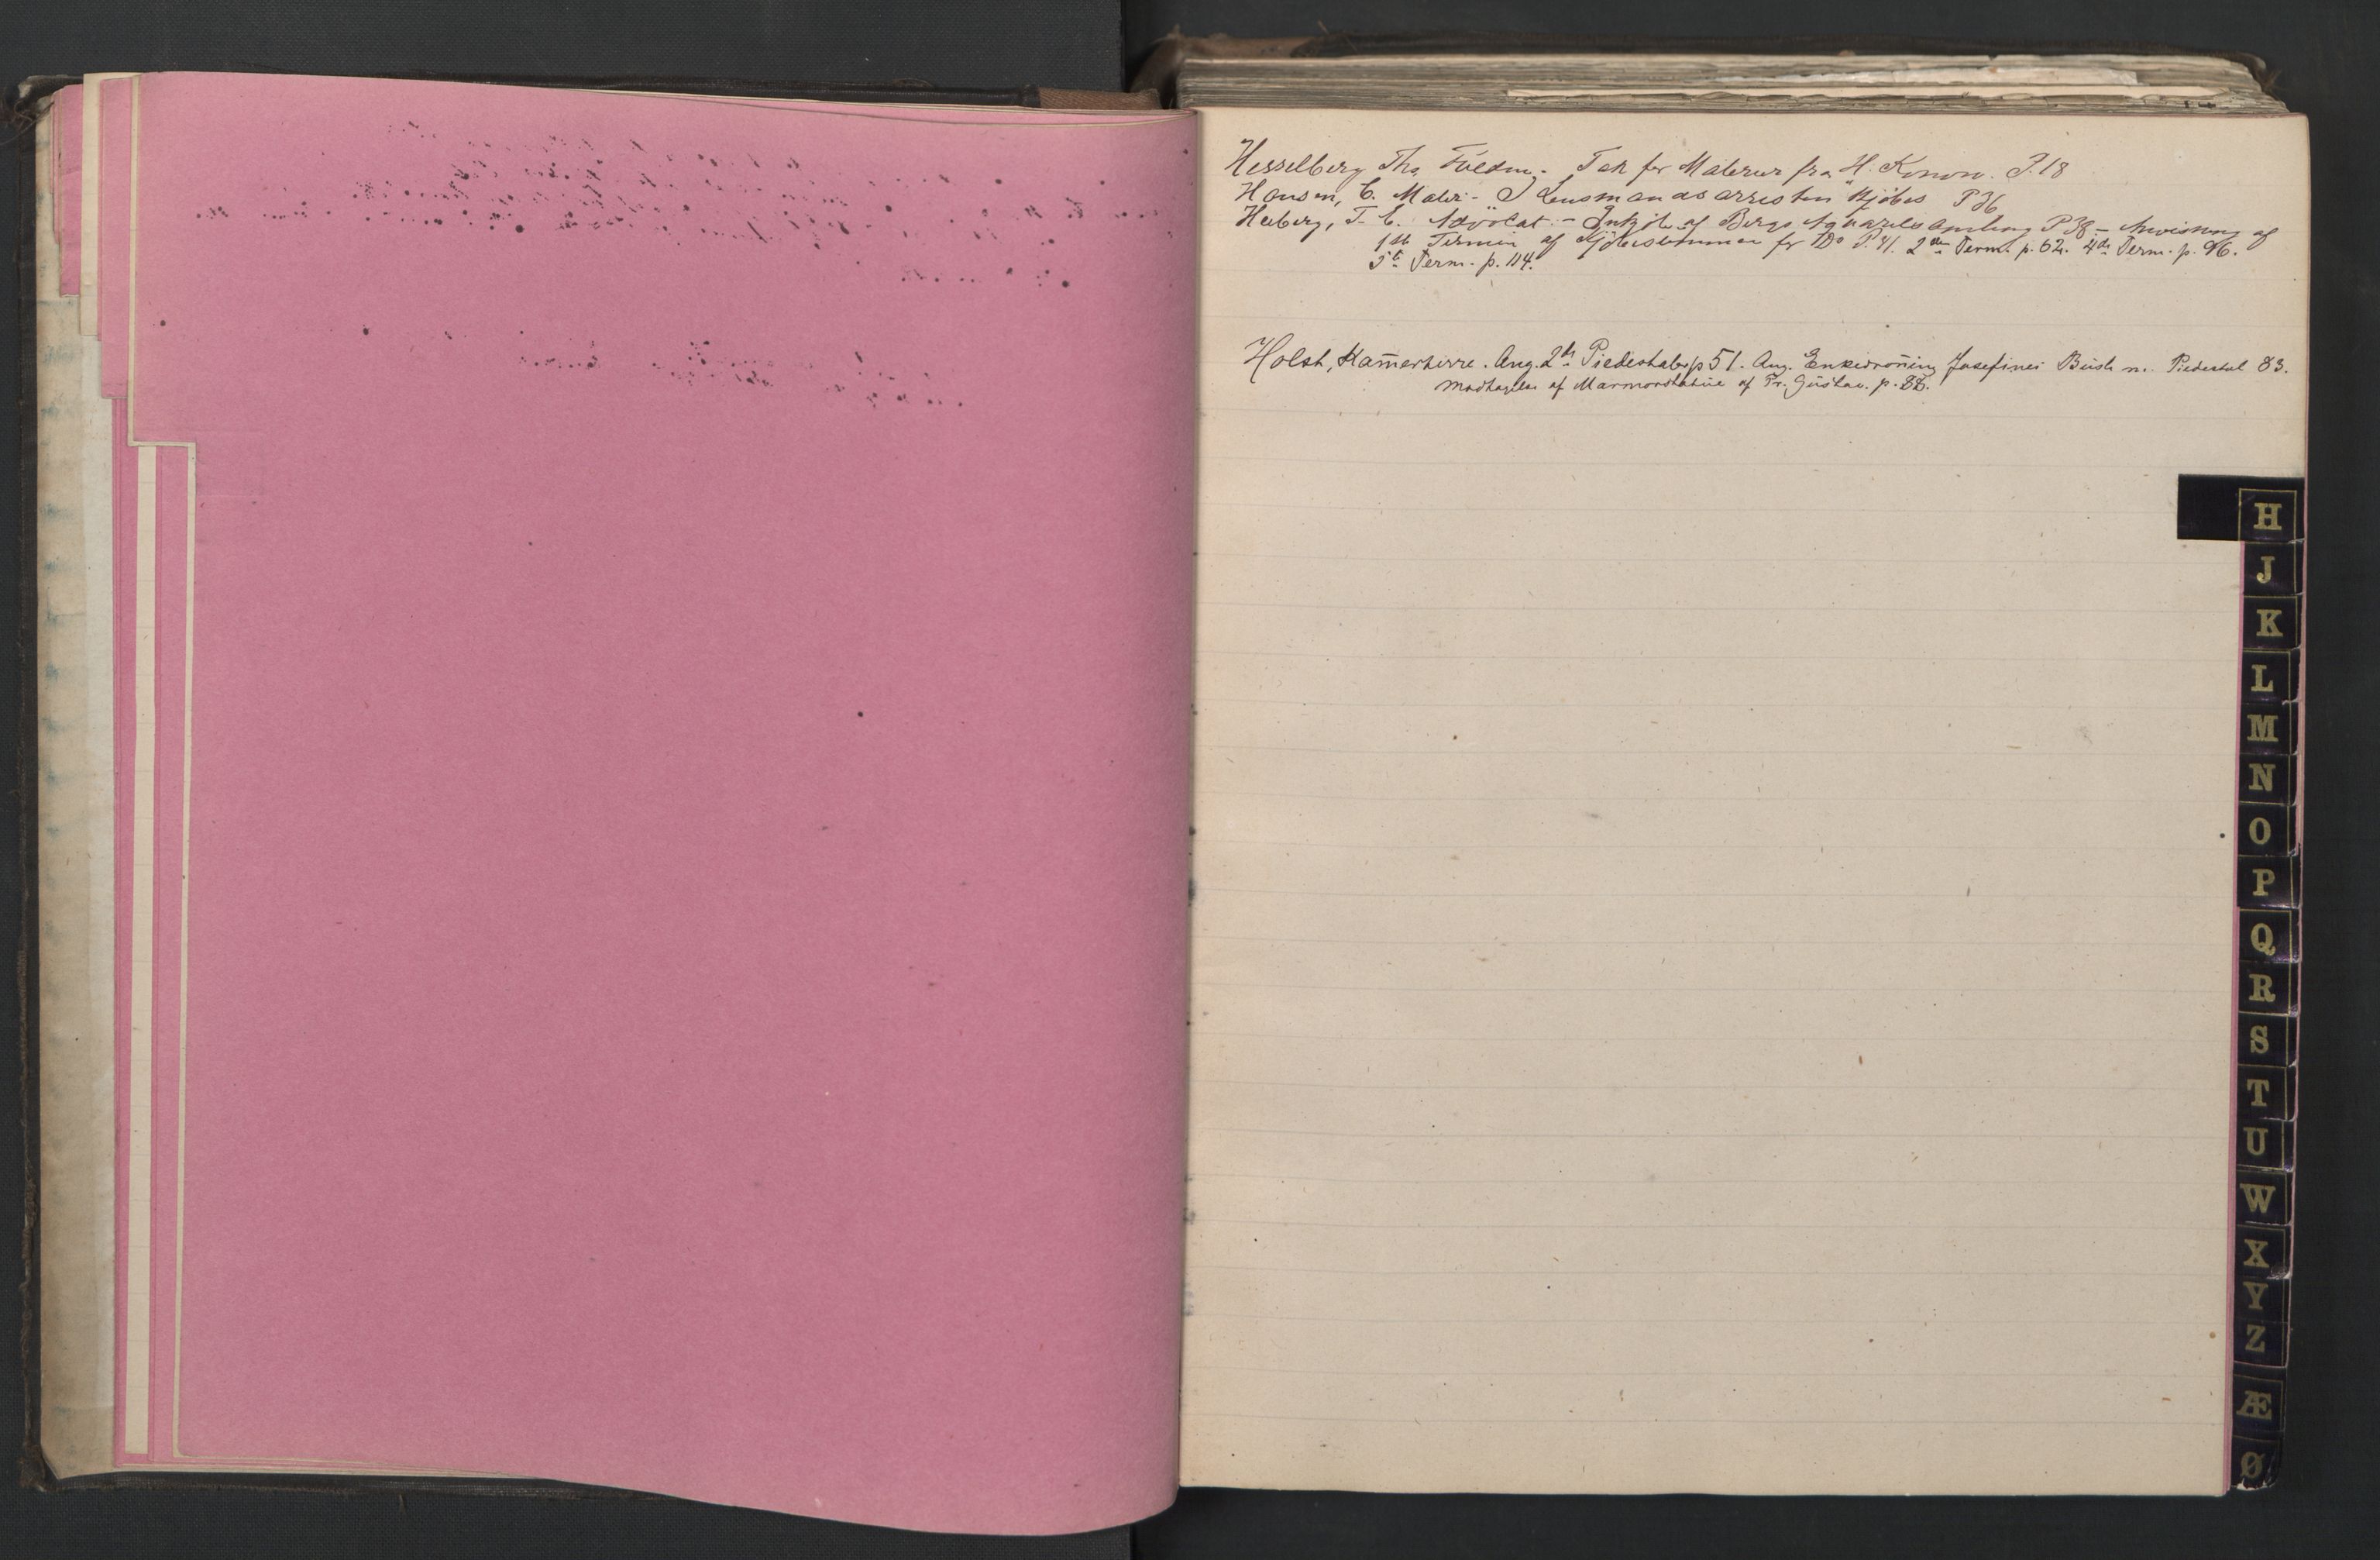 Hesselberg Ths, Fuldm. - Tak for Malerier fra H. Konow. P. 18
Hansen, C. Maler - "I Lensmandsarresten" kjöbes P 36
Heiberg, T. C. Advocat - Indkjöb af Bergs Aquarelsamling P 38 - Anvisning af
1ste Termin af Kjöbesummen for Do P. 41. 2den Term. p. 62. 4de Term. p. 96.
5te Term. p. 114.
Holst, Kam̄erherre. Ang. 2de Piedestaler p 51. Ang. Enkedron̄ing Josefines Buste m. Piedestal 83.
Modtagelse af Marmorstatue af Pr. Gustav. p. 88.
H
J
K
L
M
N
O
P
Q
R
S
T
U
W
X
Y
Z
Æ
Ø